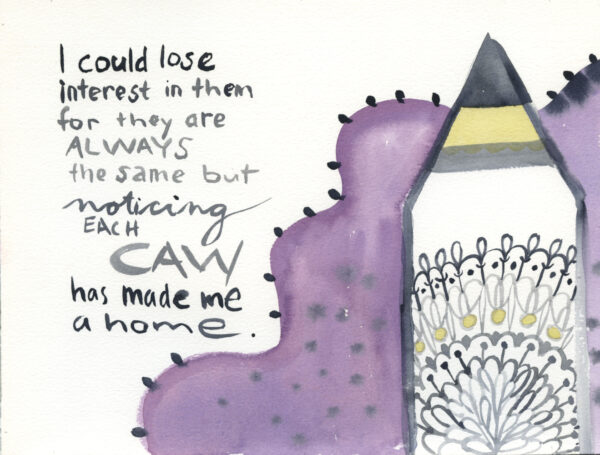 I could lose
interest in them
for they are
ALWAYS
the same but
noticing
EACH
CAW
has made me
a home.